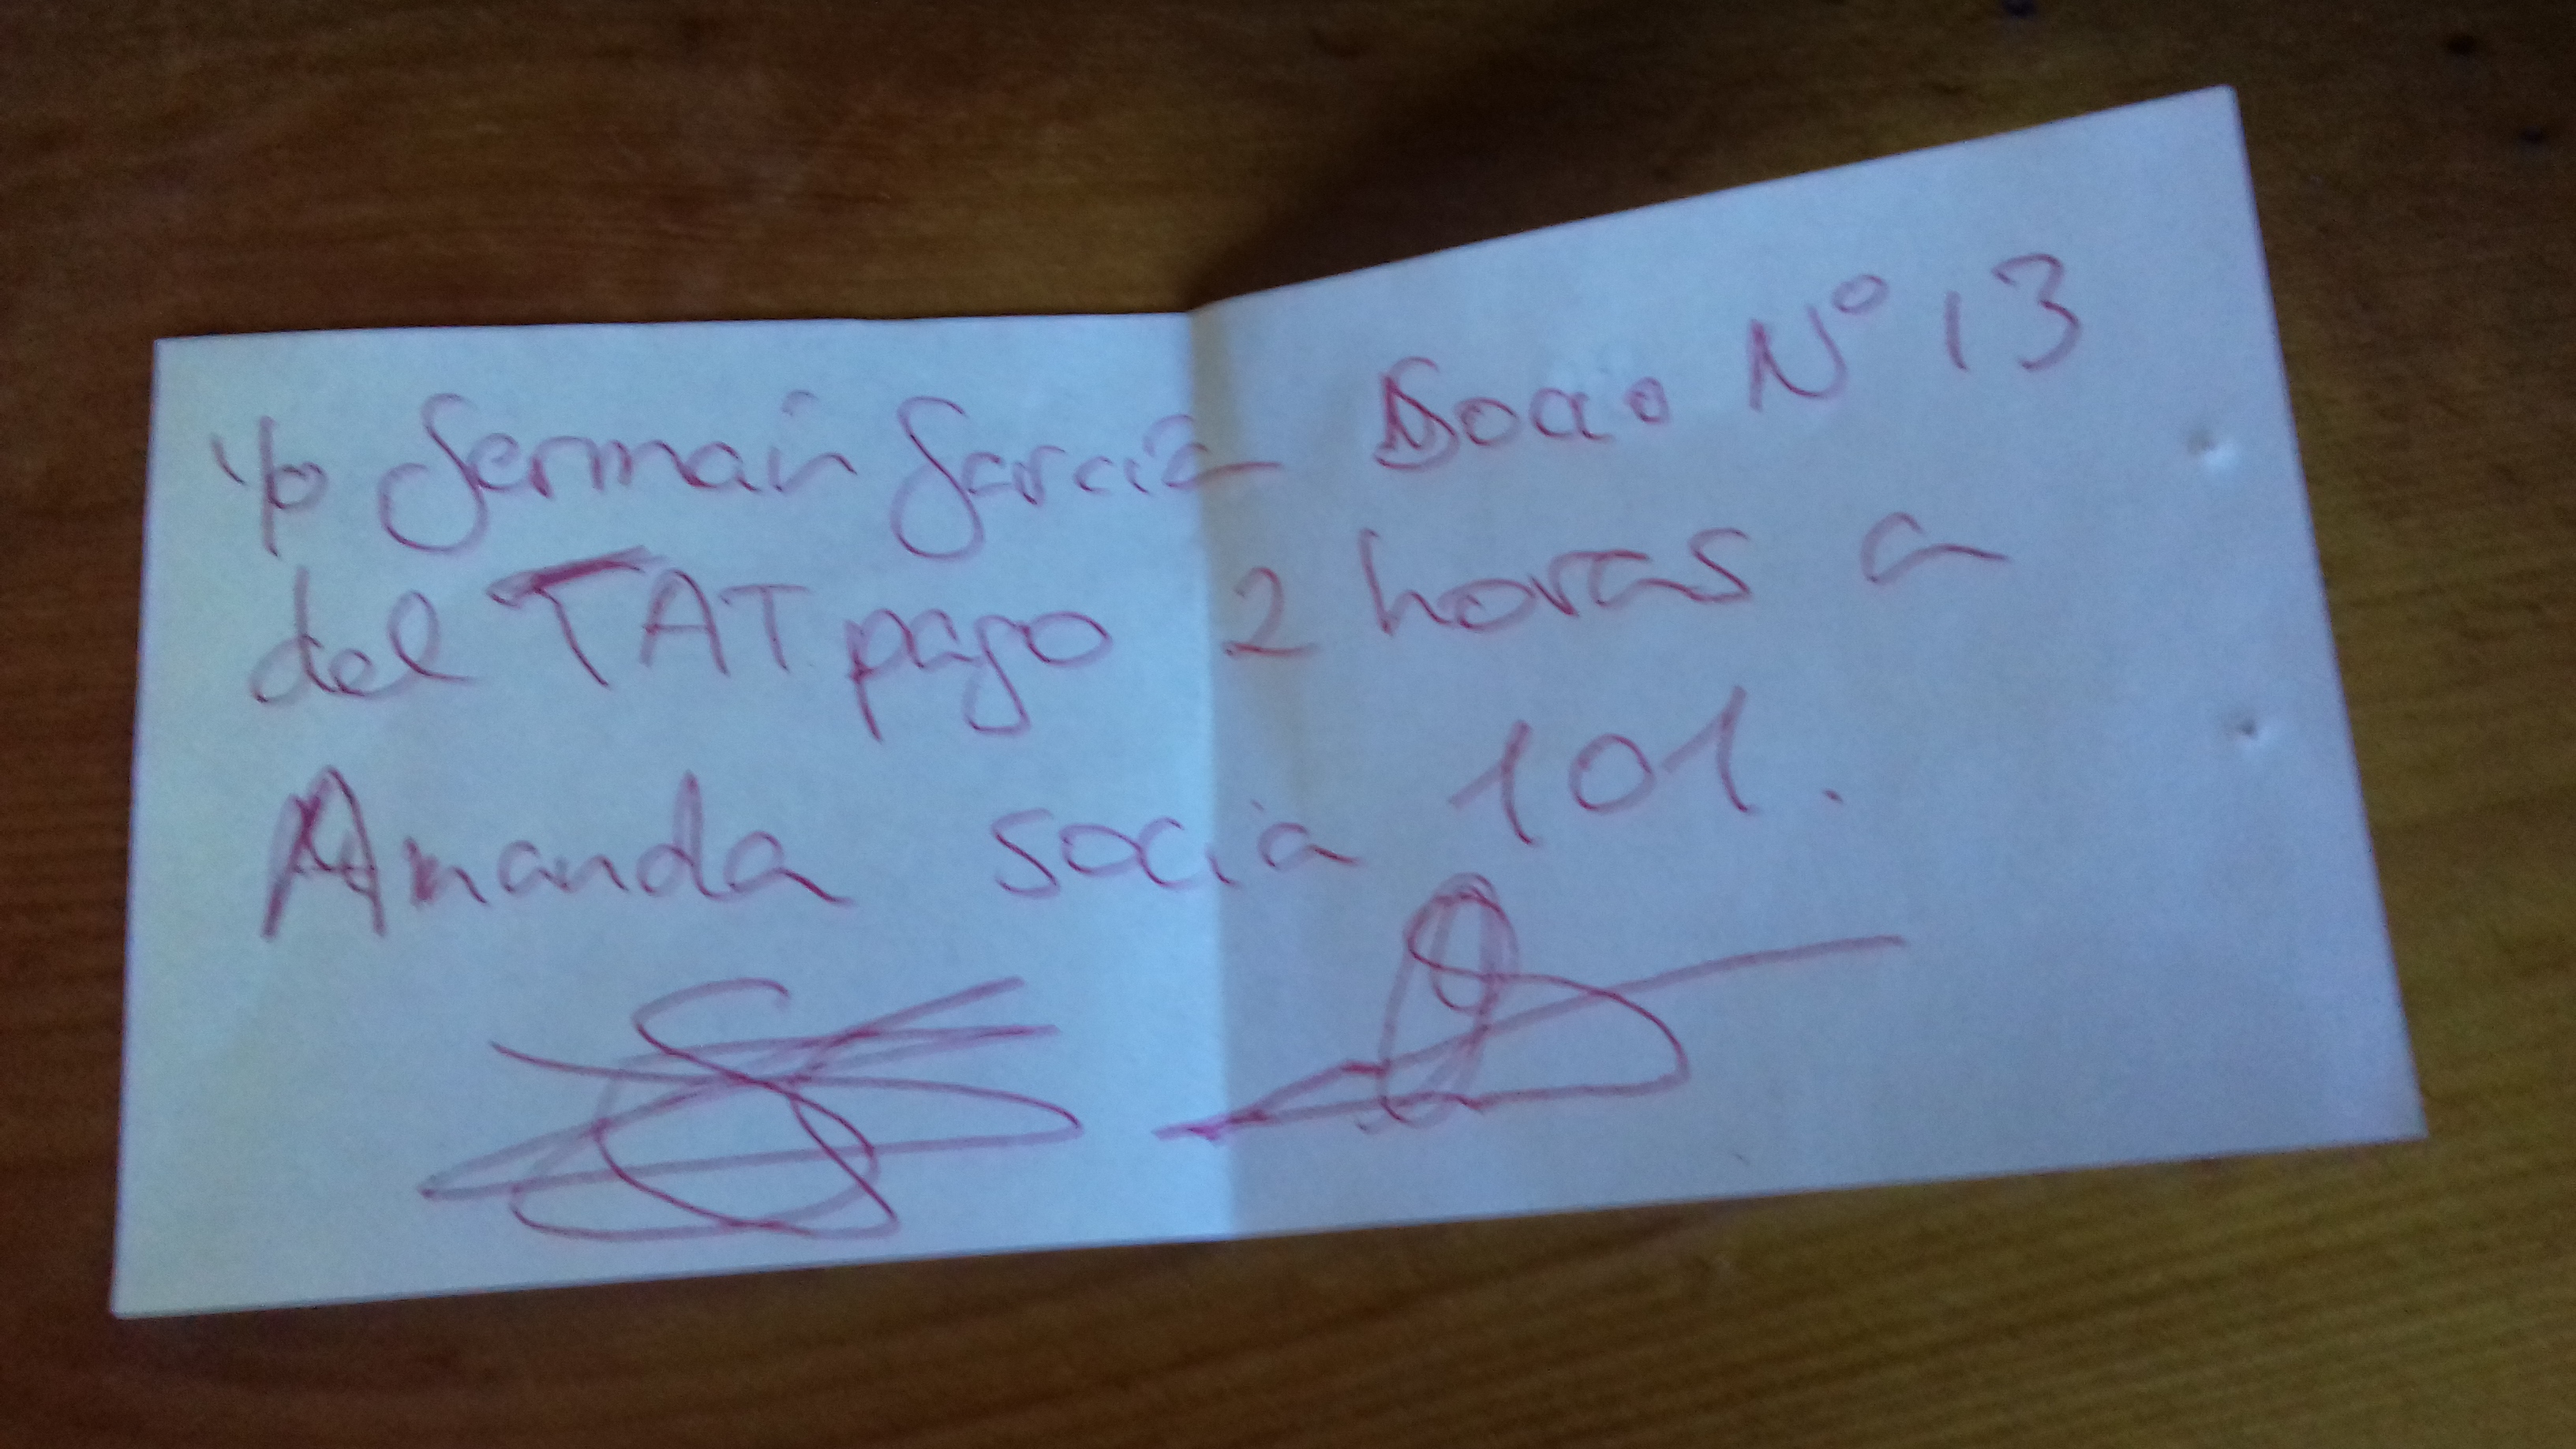 Yo Germán García Socio Nº 13
del TAT pago 2 horas a
Amanda socia 101.